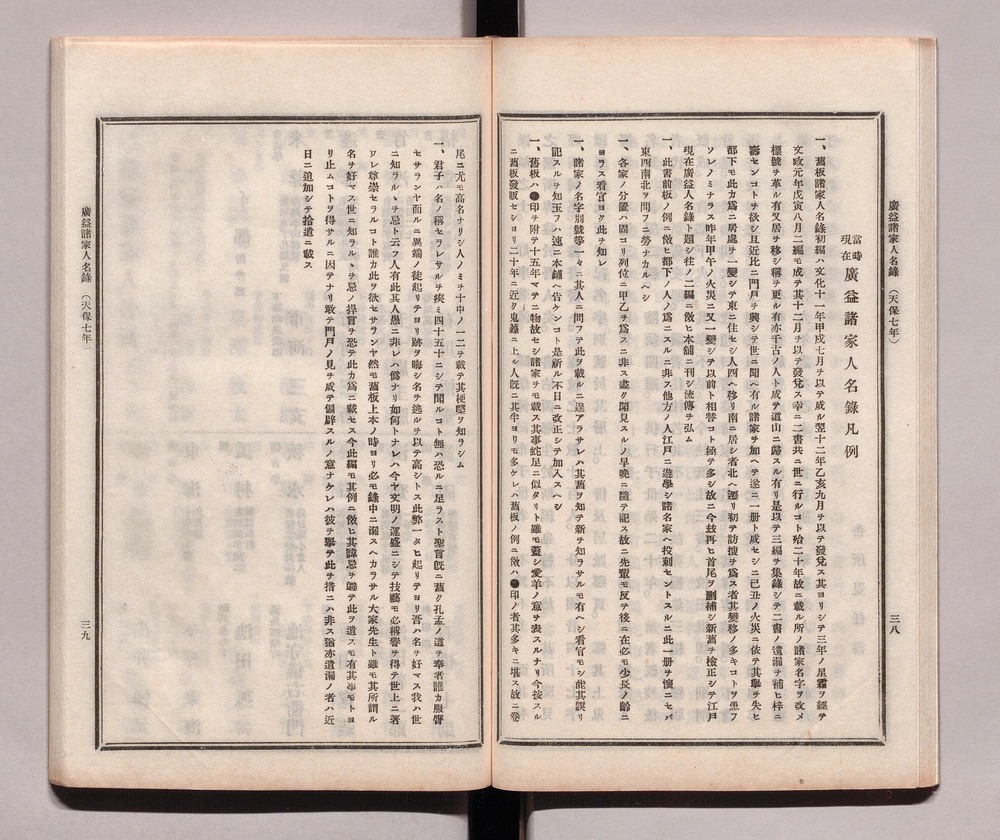 廣益諸家人名錄 (天保七年)
三八
當時現在 廣益諸家人名錄凡例
一、舊板諸家人名錄初編ハ文化十一年甲戌七月ヲ以テ成ル翌十二年乙亥九月ヲ以テ發兌ス其ヨリシテ三年ノ星霜ヲ經テ
文政元年戊寅八月二編モ成テ其十二月ヲ以テ發兌ス幸ニ二書共ニ世ニ行ルコト殆二十年故ニ載ル所ノ諸家名字ヲ改メ
標號ヲ革ル有又居ヲ移シ稱ヲ更ル有亦千古ノ人ト成テ道山ニ歸スル有リ是以テ三編ヲ集錄シテ二書ノ遺漏ヲ補ヒ梓ニ
壽センコトヲ欲シ且近比ニ門戶ヲ興シテ世ニ聞ヘ有ル諸家ヲ加ヘテ遂ニ一册ト成セシニ己丑ノ火災ニ依テ其擧ヲ失ヒ
都下モ此カ爲ニ居處ヲ一變シテ東ニ住セシ人西ヘ移リ南ニ居シ者北ヘ遷リ初テ訪搜ヲ爲ス者其變移ノ多キコトヲ患フ
ソレノミナラス昨年甲午ノ火災ニ又一變シテ以前ト相替コト極テ多シ故ニ今玆再ヒ首尾ヲ刪補シ新舊ヲ檢正シテ江戶
現在廣益人名錄ト題シ往ノ二編ニ倣ヒ本舖ニ刊シ流傳ヲ弘ム
一、此書前板ノ例ニ倣ヒ都下ノ人ノ爲ニスルニ非ス他方ノ人江戶ニ遊學シ諸名家ヘ投刺セントスルニ此一册ヲ懷ニセバ
東西南北ヲ問フニ勞ナカルヘシ
一、各家ノ分置ハ固ヨリ列位ニ甲乙ヲ爲スニ非ス盡ク聞見スルノ早晚ニ隨テ記ス故ニ先輩モ反テ後ニ在必モ少長ノ齡ニ
ヨラス看官ヨク此ヲ知レ
一、諸家ノ名字別號等一々ニ其人ニ問フテ此ヲ載ルニ遑アラサレハ其舊ヲ知テ新ヲ知ラサルモ有ヘシ看官モシ能其誤リ
記スルヲ知玉フハ速ニ本舖ヘ告ケンコト是新ル不日ニ改正シテ加入スヘシ
一、舊板ハ●印ヲ附テ十五年マテニ物故セシ諸家ヲモ載ス其事蛇足ニ似タリト雖モ蓋シ愛羊ノ意ヲ表スルナリ今按スル
ニ舊板發販セシヨリ二十年ニ近ク鬼錄ニ上ル人旣ニ其半ヨリモ多ケレハ舊板ノ例ニ倣ハ●印ノ者其多キニ堪ス故ニ卷
尾ニ尤モ高名ナリシ人ノミヲ十中ノ一二ヲ載テ其梗槩ヲ知ラシム
一、君子ハ名ノ稱セラレサルヲ疾ミ四十五十ニシテ聞ルコト無ハ恐ルニ足ラスト聖言旣ニ舊ク孔孟ノ道ヲ奉者誰カ服膺
セサランヤ而ルニ異端ノ徒起リテヨリ跡ヲ晦シ名ヲ逃ルヲ以テ高シトス此弊一タヒ起リテヨリ吾ハ名ヲ好マス我ハ世
ニ知ラルヽヲ忌ト云フ人有此其人愚ニ非レハ僞ナリ如何トナレハ今ヤ文明ノ運盛ニシテ技藝モ必稱譽ヲ得テ世上ニ著
ワレ尊崇セラルコト誰カ此ヲ欲セサランヤ然モ舊板上木ノ時ヨリ必モ錄中ニ漏スヘカラサル大家先生ト雖モ其所謂ル
名ヲ好マス世ニ知ラルヽヲ忌ノ撏言ヲ恐テ此カ爲ニ載セス今此編モ其例ニ倣ヒ其諱忌ヲ避テ此ヲ遺スモ有其事モトヨ
リ止ムコトヲ得サルニ因テナリ敢テ門戶ノ見ヲ成テ偏辟スルノ意ナケレハ彼ヲ擧テ此ヲ措ニハ非ス猶亦遺漏ノ者ハ近
日ニ追加シテ拾遺ニ載ス
廣益諸家人名錄 (天保七年)
三九